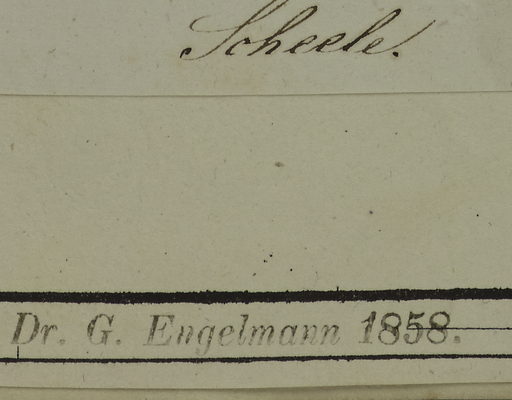 Scheele.
Dr. G. Engelmann 1858.